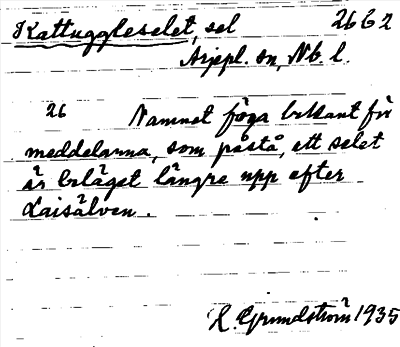 Kattuggleselet, sel 26 G 2
Arjepl. sn, Nb. l.
26 Namnet föga bekant för
meddelarna, som påstå, ett selet
är beläget längre upp efter
Laisälven.
H. Grundström 1935